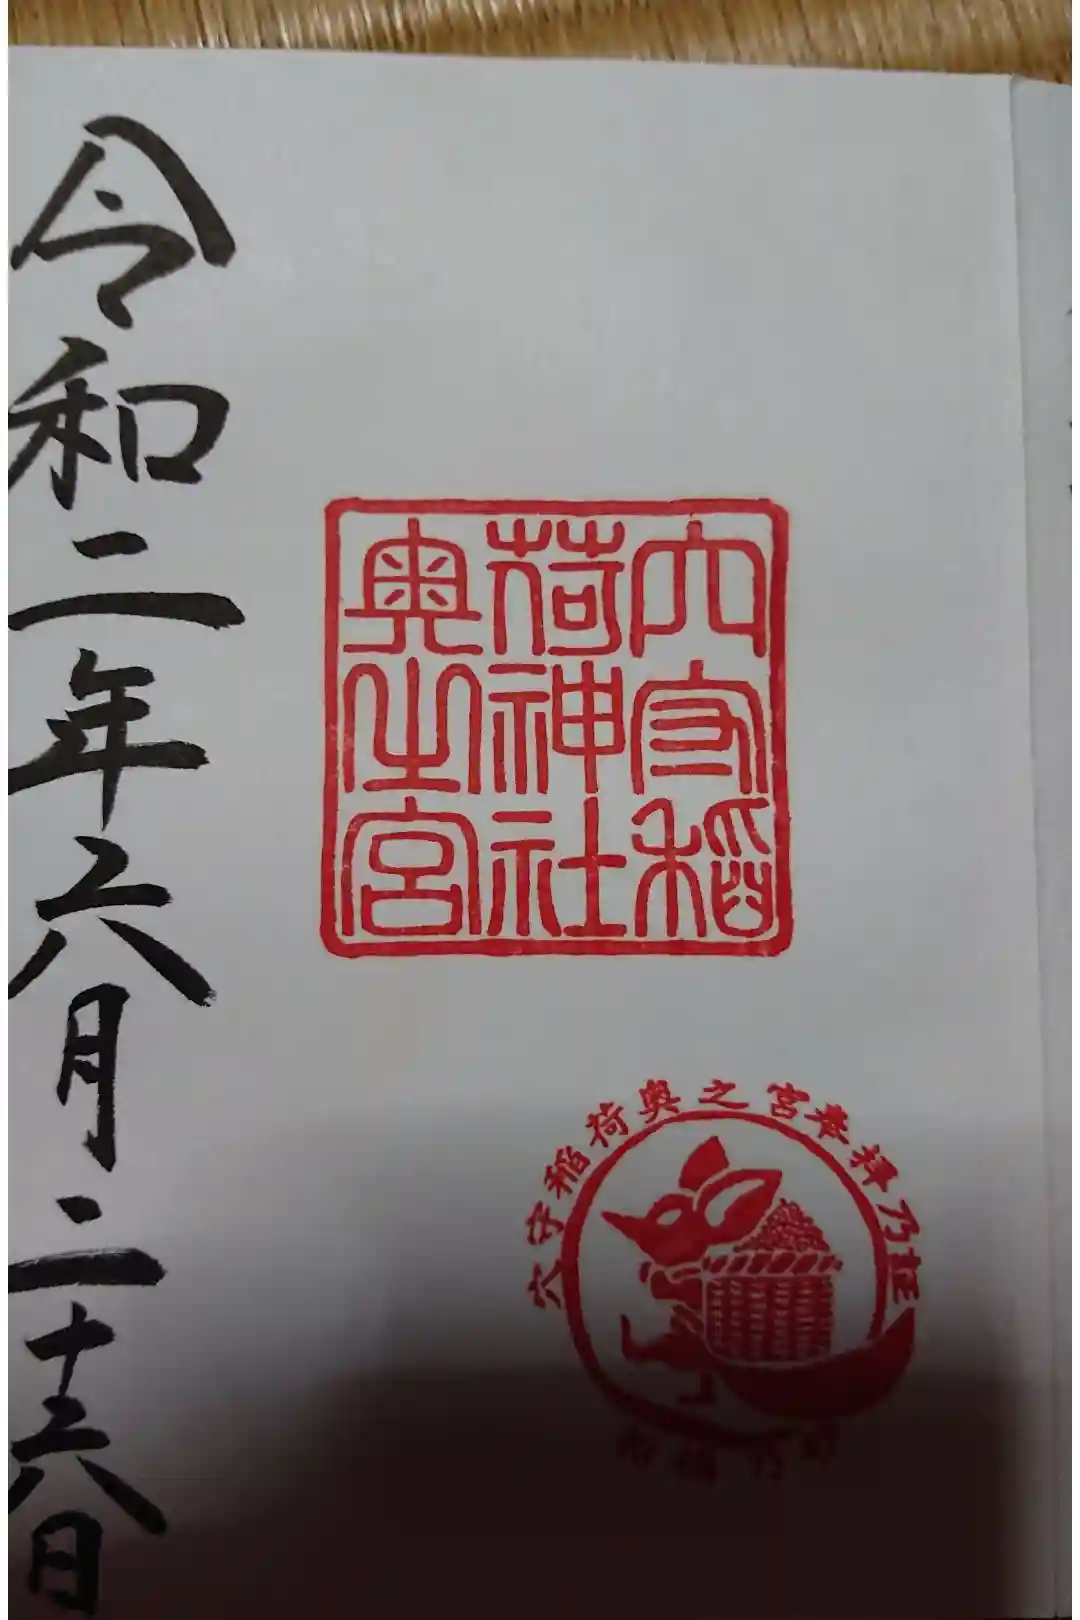 穴守稲
荷神社
奥之宮
穴守稲荷奥之宮奉拝乃証
招福乃砂
令和二年六月二十六日